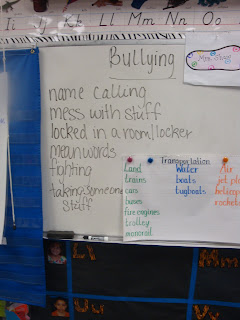 Ii Kk Ll Mm Nn Oo
Bullying
name calling
mess with stuff
locked in a room/locker
mean words
fighting
taking someone
stuff
Transportation
Land
trains
cars
buses
fire engines
trolley
monorail
Water
boats
tugboats
Air
jet pla
helicop
rockets
Ll
Mm
Uu